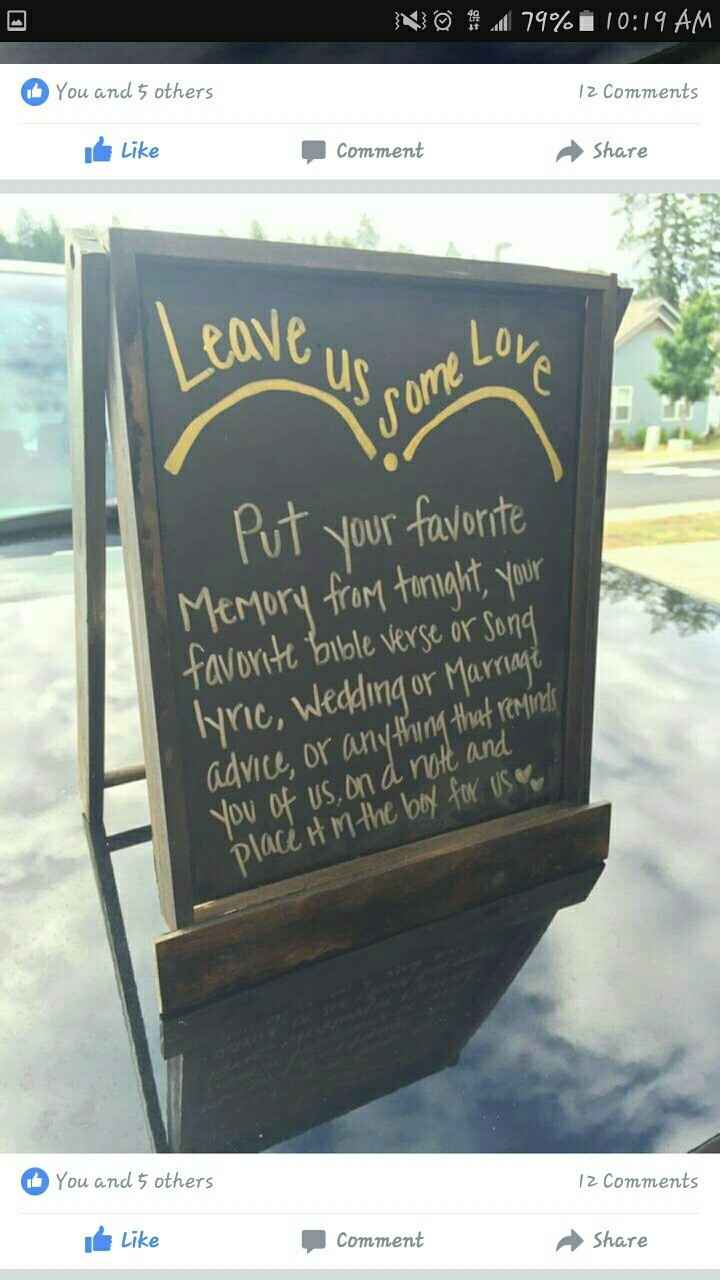 79% 10:19 AM
You and 5 others 12 Comments
Like Comment Share
Leave us some Love
Put your favorite
Memory from tonight, your
favorite bible verse or song
lyric, wedding or Marriage
advice, or anything that reminds
you of us, on a note and
place it in the box for us
You and 5 others 12 Comments
Like Comment Share